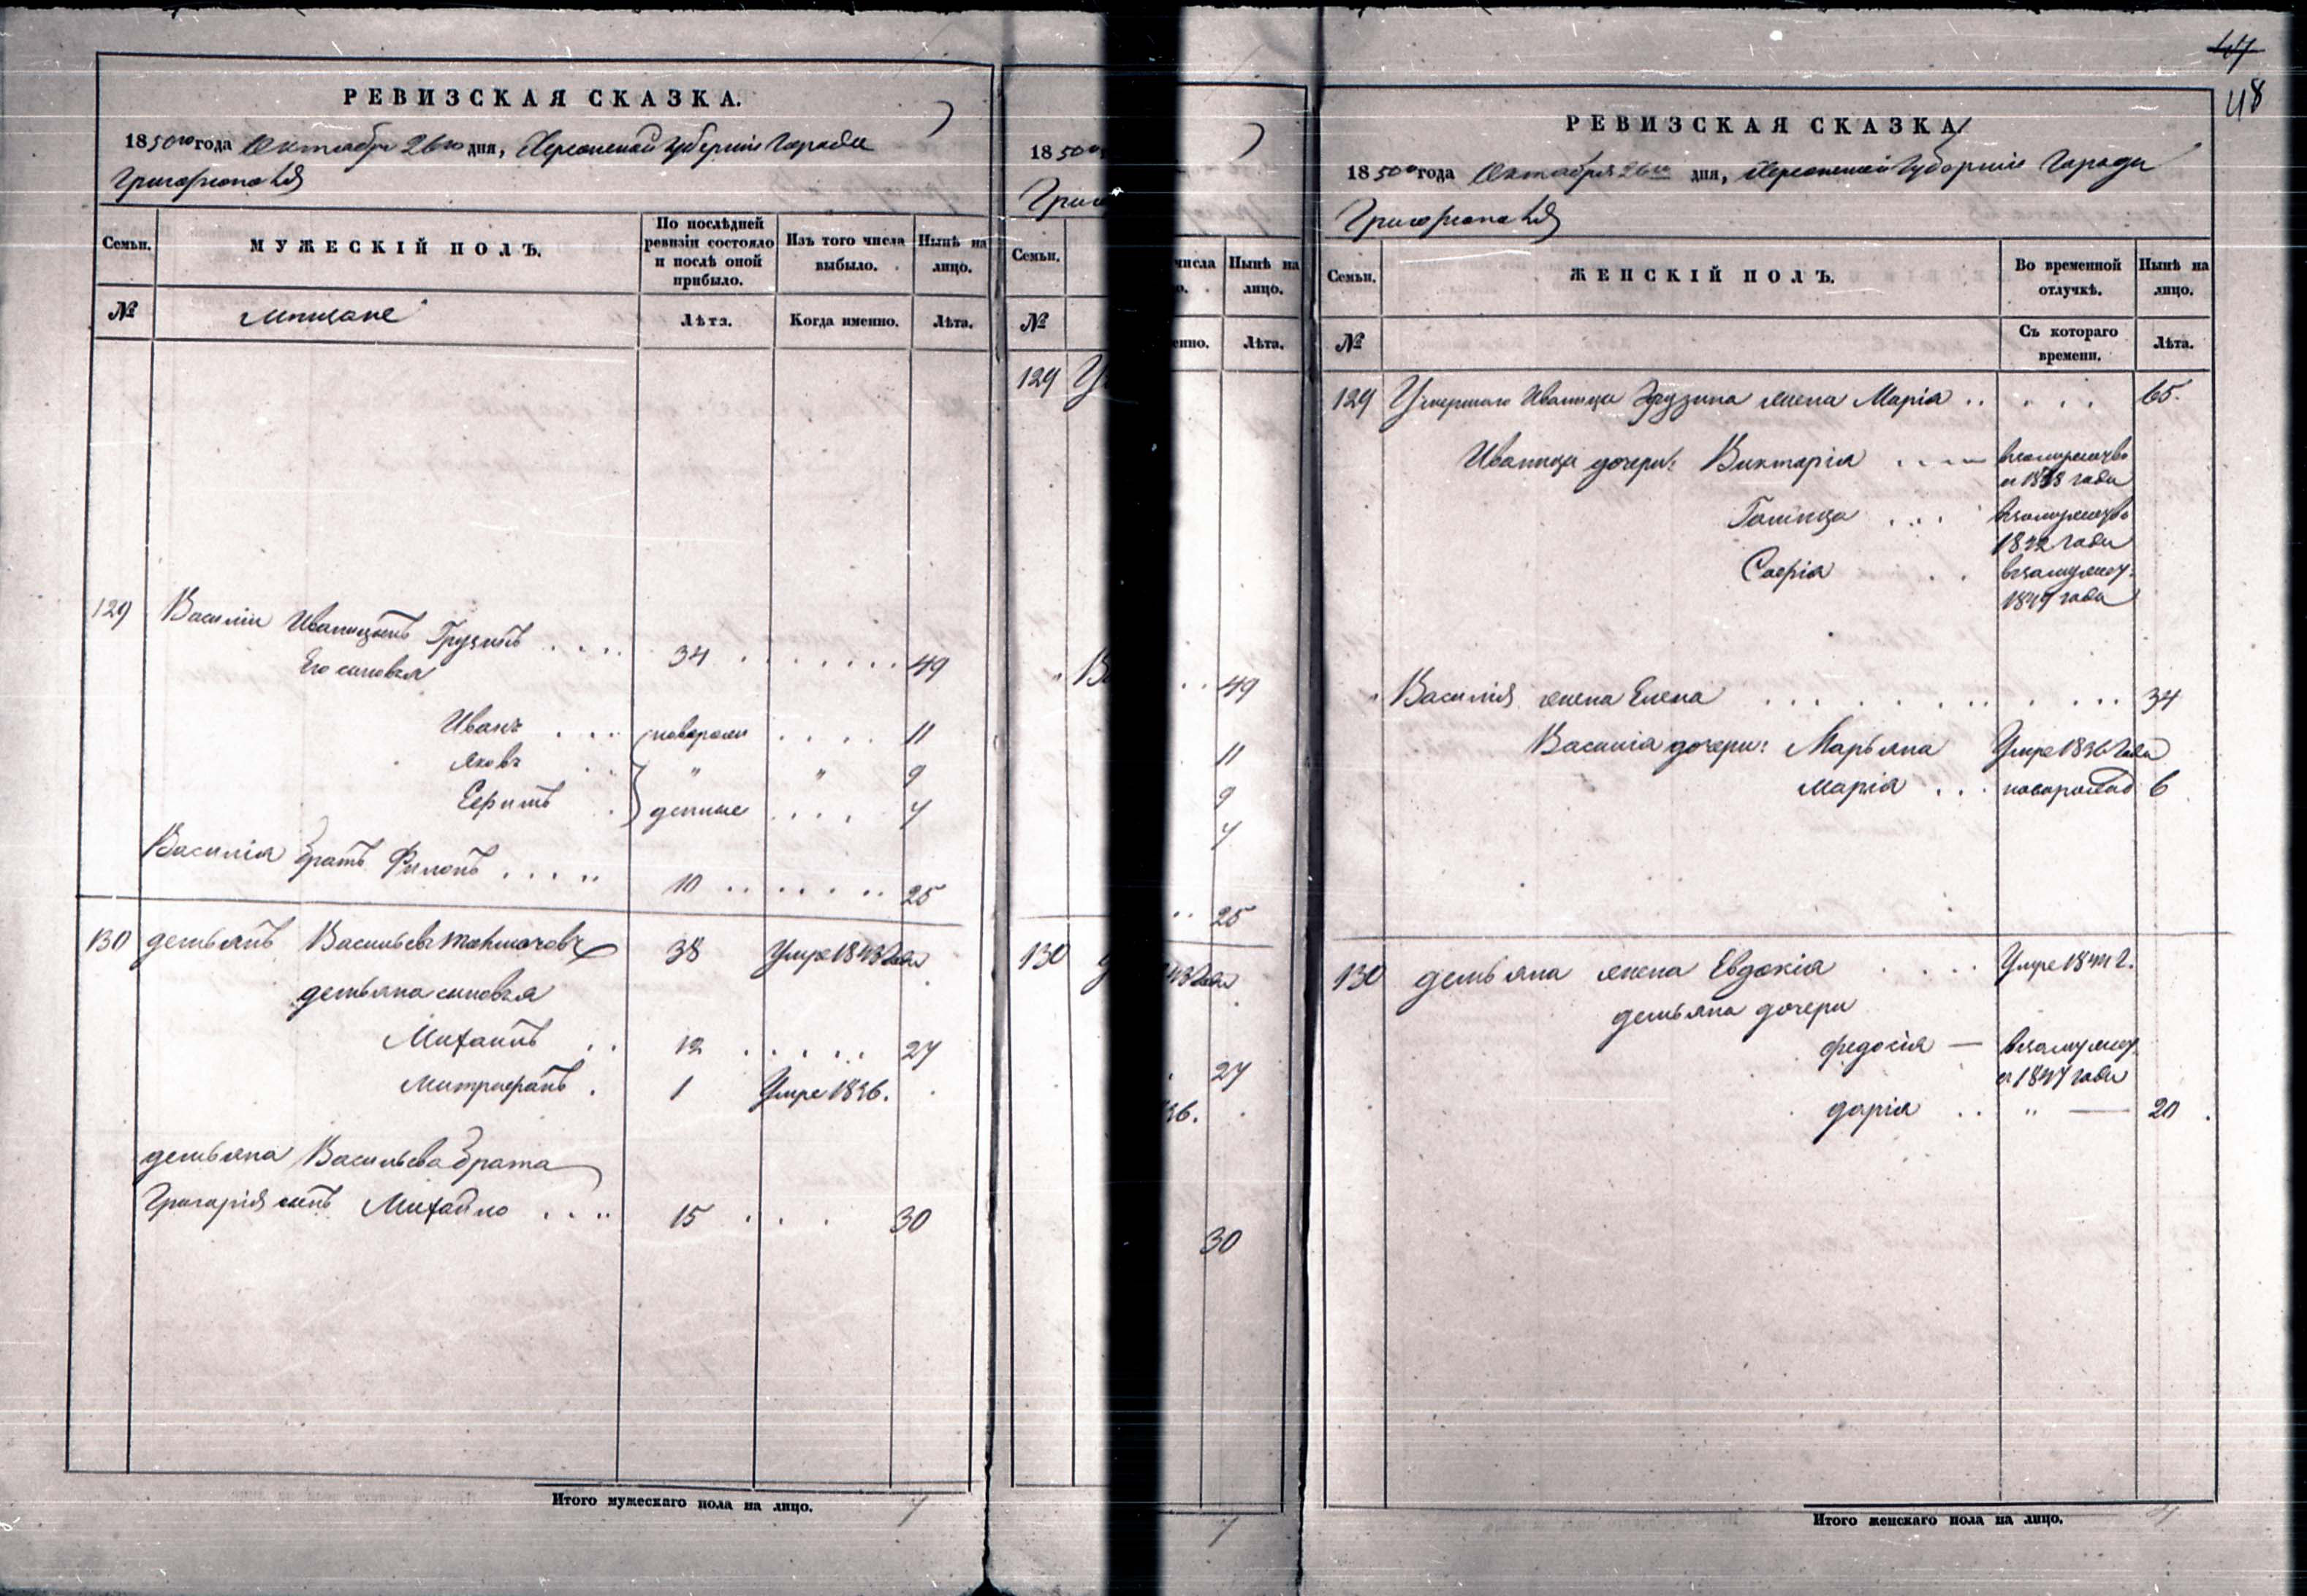 РЕВИЗСКАЯ СКАЗКА.
1850го года Октября 26го дня, Херсонской Губернии Города
Григориополя
Семьи.
МУЖЕСКІЙ ПОЛЪ.
По послѣдней ревизіи состояло и послѣ оной прибыло.
Изъ того числа выбыло.
Нынѣ на лицо.
№
мещане
Лѣта.
Когда именно.
Лѣта.
129 Василій Иваницынъ Грузинъ .... 34 ....... 49
Его сыновья
Иванъ .... новорож .... 11
Яковъ .. " " 9
Ефимъ . денные .... 4
Василія братъ Филипъ ..... 10 ...... 25
130 демьянъ Васильевъ 38 Умре 1843 года
демьяна сыновья
Михаилъ .. 12 ..... 27
Митрофанъ . 1 Умре 1836. .
демьяна Васильева брата
Григорія сынъ Михайло .... 15 ... 30
Итого мужескаго пола на лицо. 7
1850го
Григо
Семьи.
числа
Нынѣ на лицо.
№
енно.
Лѣта.
129 У
" В .. 49
11
9
4
.. 25
130 д 43 года
27
36. .
30
7
47
48
РЕВИЗСКАЯ СКАЗКА
1850го года Октября 26го дня, Херсонской Губерніи Города
Григориополя
Семьи.
ЖЕНСКІЙ ПОЛЪ.
Во временной отлучкѣ.
Нынѣ на лицо.
№
Съ котораго времени.
Лѣта.
129 Умершаго Иваницы Грузина жена Марія .. ... 65.
Иваницы дочери: Викторія .... взамужствѣ
съ 1838 года
... взамужствѣ
1842 года
Софія .. взамужст:
1849 года
" Василія жена Елена ............ 34
Василія дочери: Марьяна Умре 1836 года
Марія ... новорожд 6
130 демьяна жена Евдокія .... Умре 1844 г.
демьяна дочери
федосія — взамужст.
съ 1847 года
дарія .. " — 20 .
Итого женскаго пола на лицо. 4